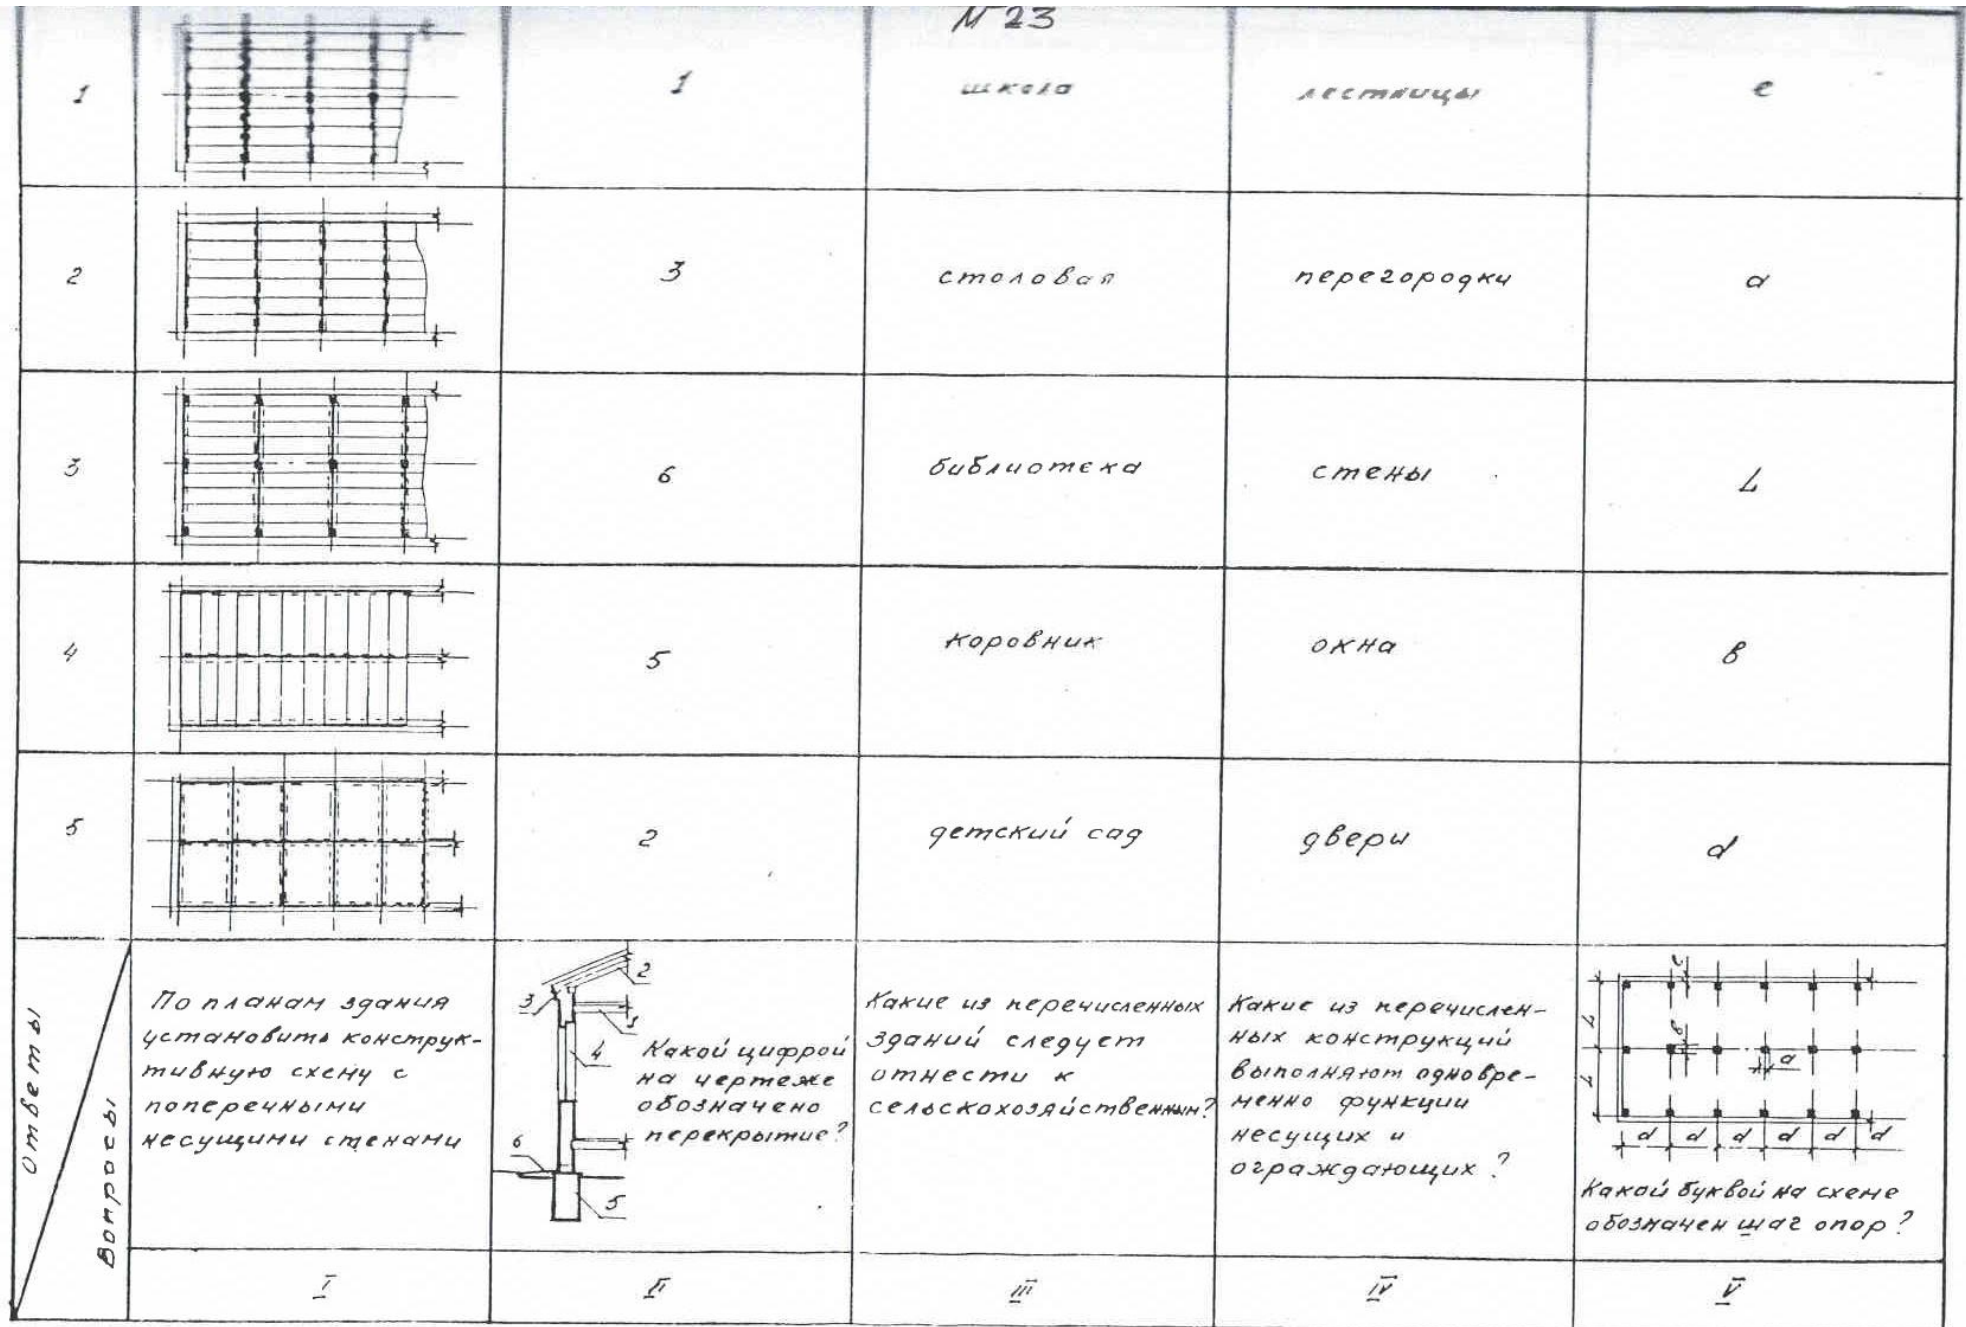 М 23
1
1
школа
лестницы
е
2
3
столовая
перегородки
а
3
6
библиотека
стены
L
4
5
коровник
окна
в
5
2
детский сад
двери
d
Ответы
Вопросы
По планам здания
установить конструк-
тивную схему с
поперечными
несущими стенами
2
3
1
4
6
5
Какой цифрой
на чертеже
обозначено
перекрытие?
Какие из перечисленных
зданий следует
отнести к
сельскохозяйственным?
Какие из перечислен-
ных конструкций
выполняют одновре-
менно функции
несущих и
ограждающих?
е
L
в
а
L
d d d d d d
Какой буквой на схеме
обозначен шаг опор?
I
II
III
IV
V